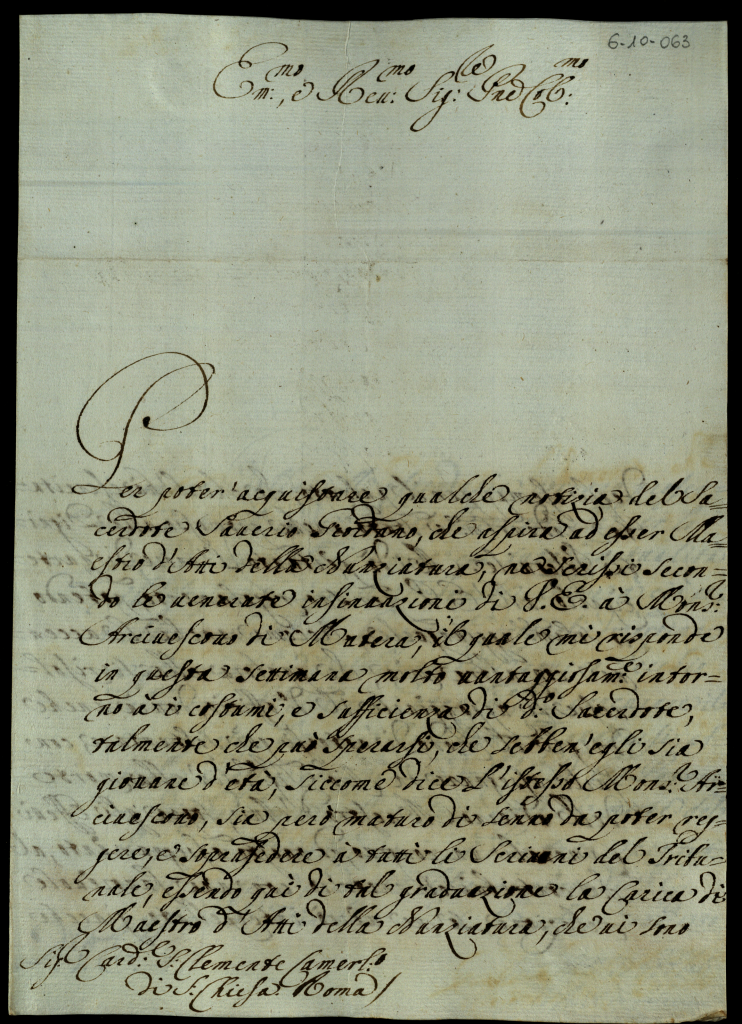 6-10-063
Em:mo, e Reu:mo Sig:re Pne Col:mo
Per poter' acquistare qualche notizia del Sa=
cerdote Sauerio Giordano, che aspira ad esser Ma=
estro d'Atti della Nunziatura, ne scrissi secon=
do le uenerate insinuazioni di V.E. à Mons:r
Arciuescouo di Matera, il quale mi risponde
in questa settimana molto uantaggiosam:te intor=
no à i costumi, e sufficienza di d:o Sacerdote,
talmente che può sperarsi, che sebben' egli sia
giouane d'età, siccome dice l'istesso Mons:r Ar=
ciuescouo, sia però maturo di senno da poter reg=
gere, e soprasedere à tutti li Scriuani del Tribu=
nale, essendo quì di tal graduazione la Carica di
Maestro d'Atti della Nunziatura, che ui sono
Sig:r Card:le S. Clemente Camerl:o
di S. Chiesa Roma /